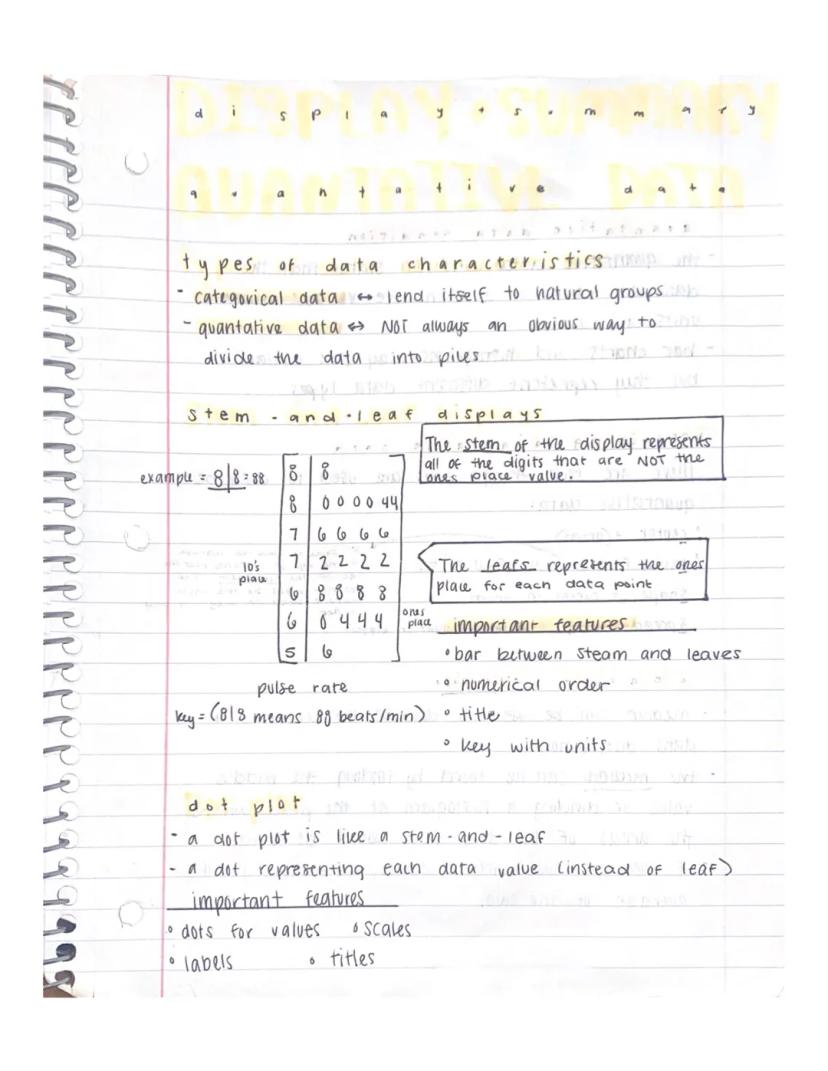 display + summary
quantative data
types of data characteristics
- categorical data ↔ lend itself to natural groups
- quantative data ↔ NOT always an obvious way to
divide the data into piles
stem-and-leaf displays
The stem of the display represents
all of the digits that are NOT the
ones place value.
example = 8|8=88
8 | 8
8 | 0 0 0 0 4 4
7 | 6 6 6 6
7 | 2 2 2 2
6 | 8 8 8 8
6 | 0 4 4 4
5 | 6
10's
place
ones
place
The leafs represents the ones
place for each data point
important features
• bar between steam and leaves
• numerical order
• title
• key with units
pulse rate
key = (8|8 means 88 beats/min)
dot plot
- a dot plot is like a stem-and-leaf
- a dot representing each data value (instead of leaf)
important features
• dots for values • scales
• labels • titles